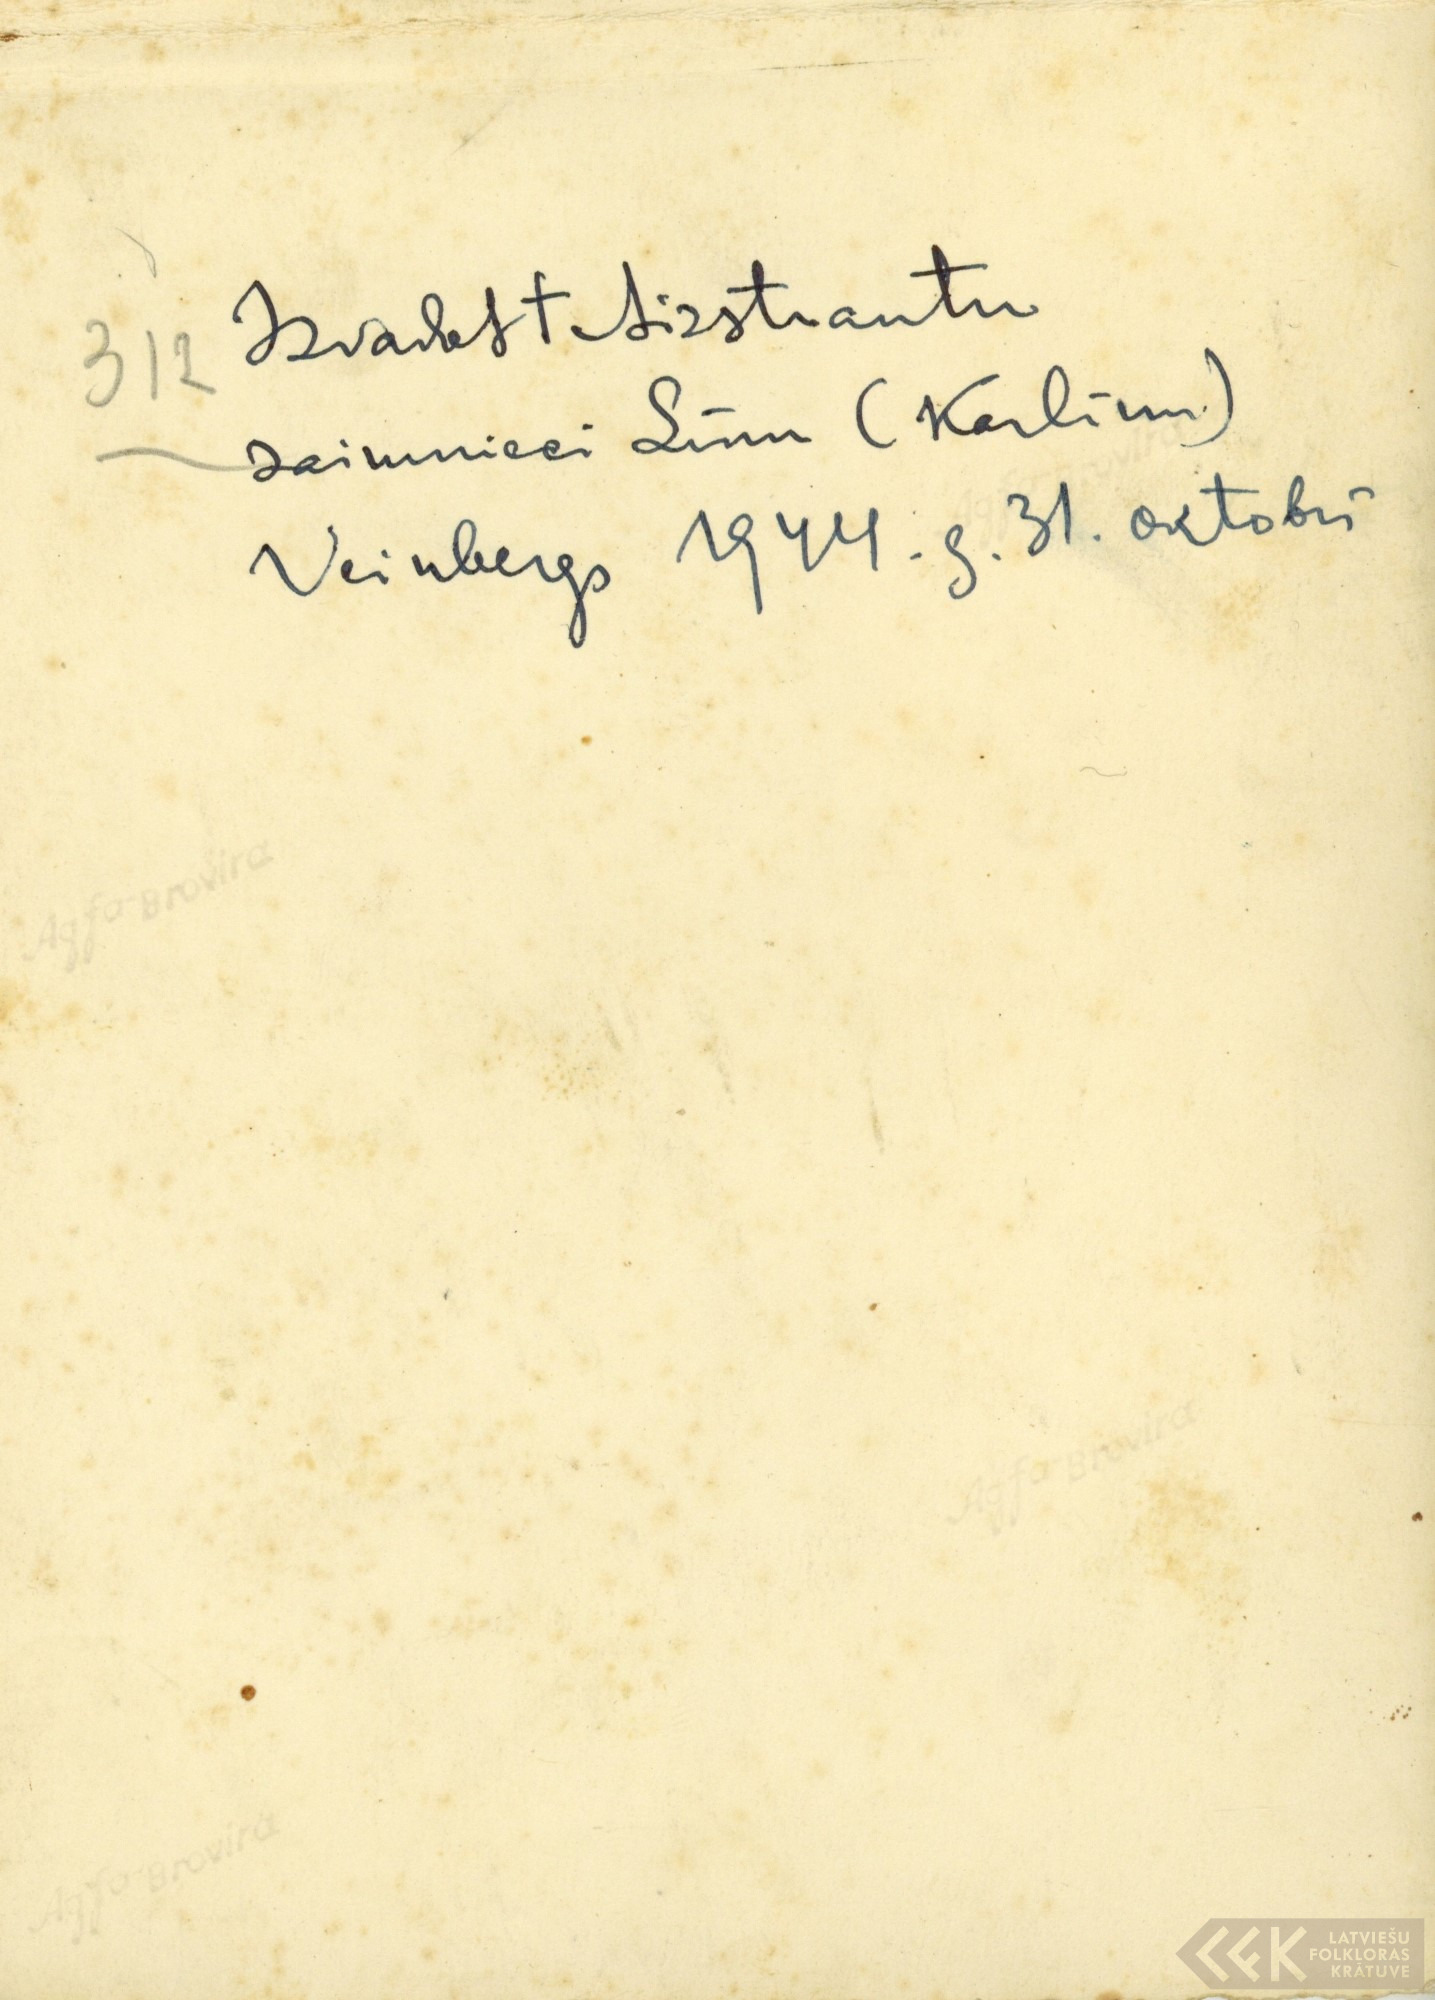 312
Izvadot † Aizstrautu
saimnieci Līnu (Karlīnu)
Veinbergs 1944. g. 31. oktobrī
Agfa Brovira
Agfa Brovira
Agfa Brovira
Agfa Brovira
LATVIEŠU
FOLKLORAS
KRĀTUVE